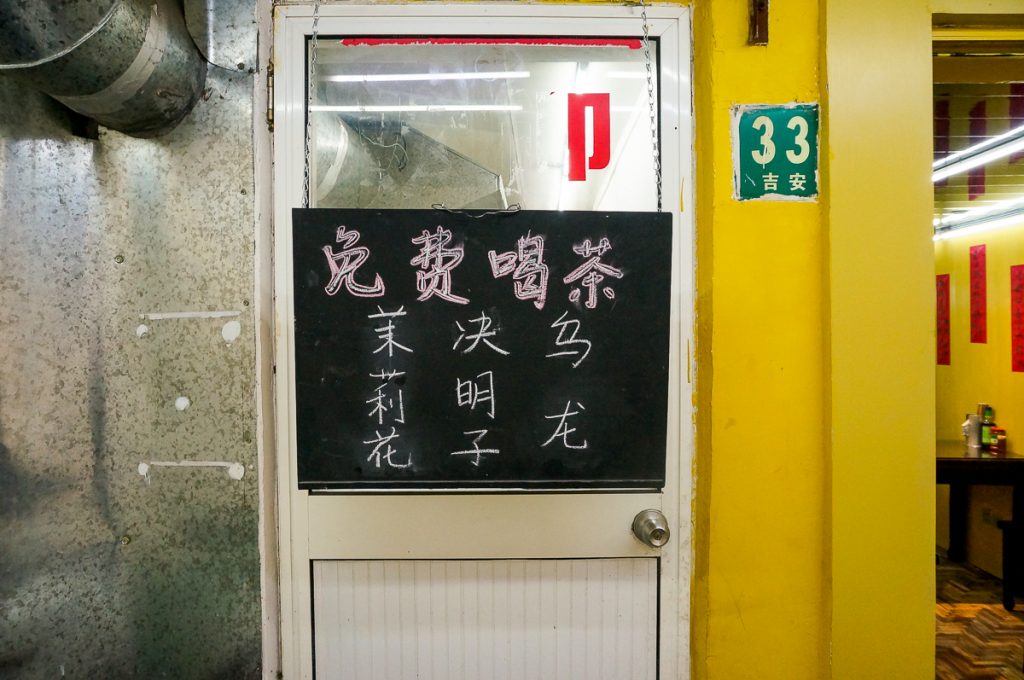 免费喝茶
茉莉花
决明子
乌龙
33
吉安